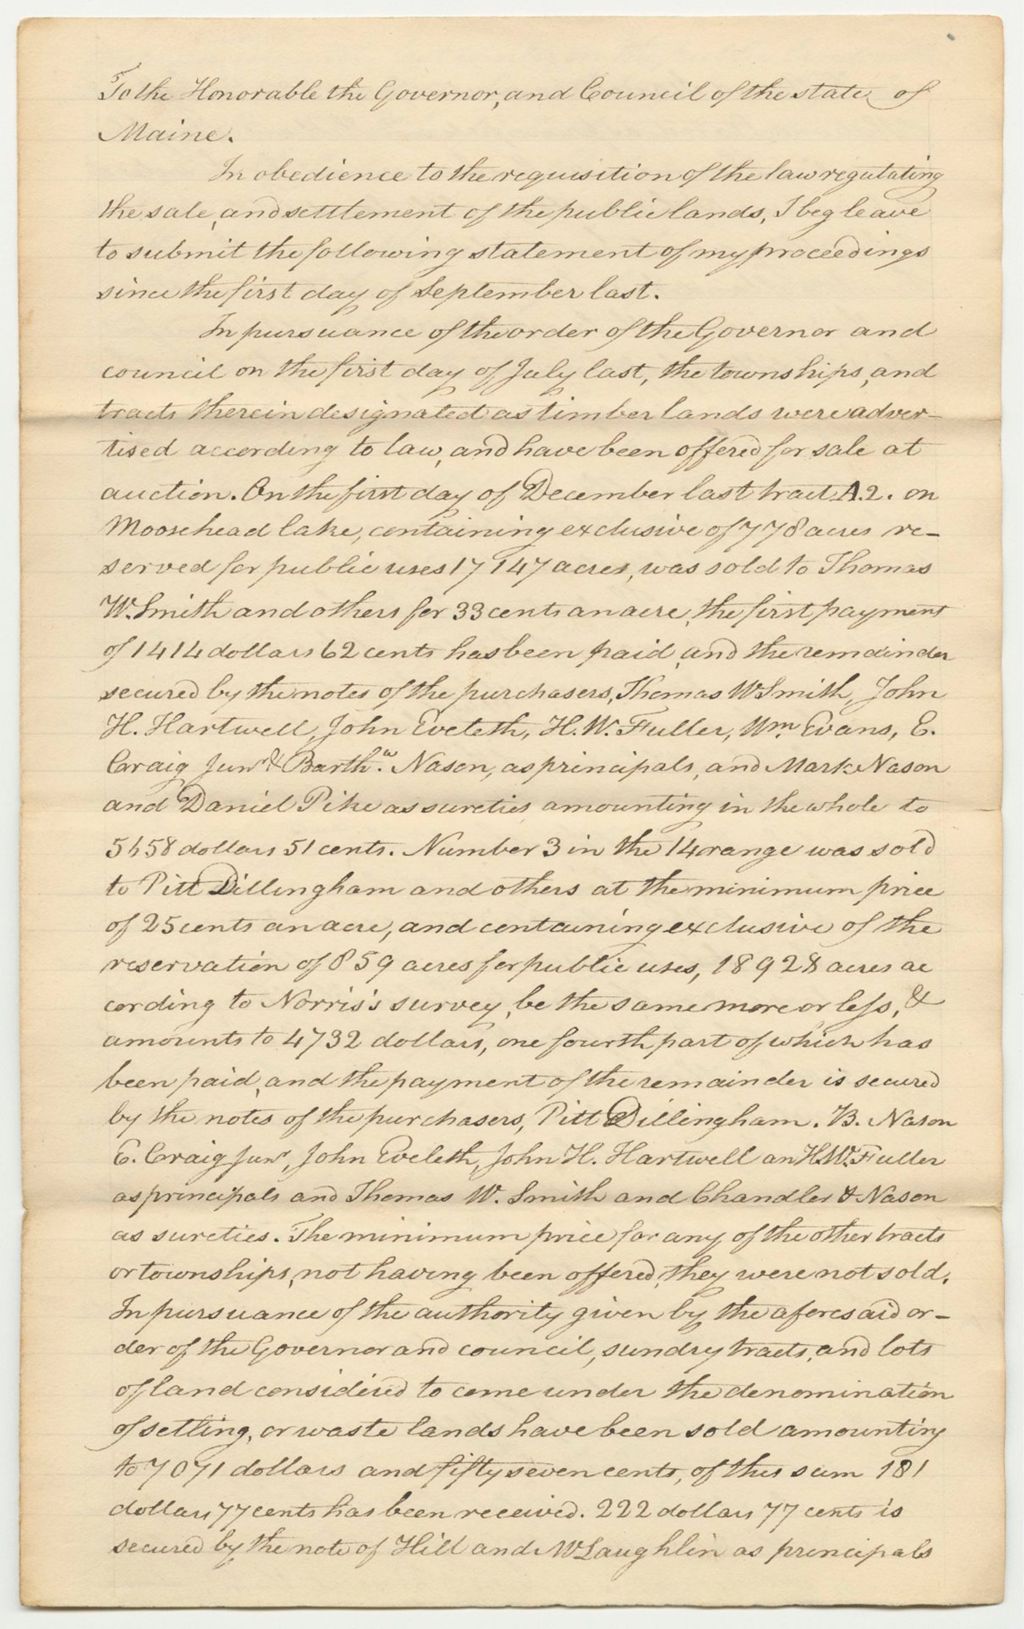 To the Honorable the Governor, and Council of the state of
Maine.
In obedience to the requisition of the law regulating
the sale, and settlement of the public lands, I beg leave
to submit the following statement of my proceedings
since the first day of September last.
In pursuance of the order of the Governor and
council on the first day of July last, the townships, and
tracts therein designated as timber lands were adver-
tised according to law, and have been offered for sale at
auction. On the first day of December last tract A.2. on
Moosehead lake, containing exclusive of 778 acres re-
served for public uses 17147 acres, was sold to Thomas
W. Smith and others for 33 cents an acre, the first payment
of 1414 dollars 62 cents has been paid, and the remainder
secured by the notes of the purchasers, Thomas W Smith, John
H. Hartwell, John Eveleth, H. W. Fuller, Wm Evans, E.
Craig Junr & Barthw. Nason, as principals, and Mark Nason
and Daniel Pike as sureties amounting in the whole to
5658 dollars 51 cents. Number 3 in the 14 range was sold
to Pitt Dillingham and others at the minimum price
of 25 cents an acre, and containing exclusive of the
reservation of 859 acres for public uses, 18928 acres ac
cording to Norris's survey, be the same more or less, &
amounts to 4732 dollars, one fourth part of which has
been paid, and the payment of the remainder is secured
by the notes of the purchasers, Pitt Dillingham. B. Nason
E. Craig Junr, John Eveleth, John H. Hartwell an H.W. Fuller
as principals and Thomas W. Smith and Chandler & Nason
as sureties. The minimum price for any of the other tracts
or townships, not having been offered, they were not sold.
In pursuance of the authority given by the aforesaid or-
der of the Governor and council, sundry tracts, and lots
of land considered to come under the denomination
of setling, or waste lands have been sold amounting
to 7071 dollars and fifty seven cents, of this sum 181
dollars 77 cents has been received. 222 dollars 77 cents is
secured by the note of Hill and McLaughlin as principals